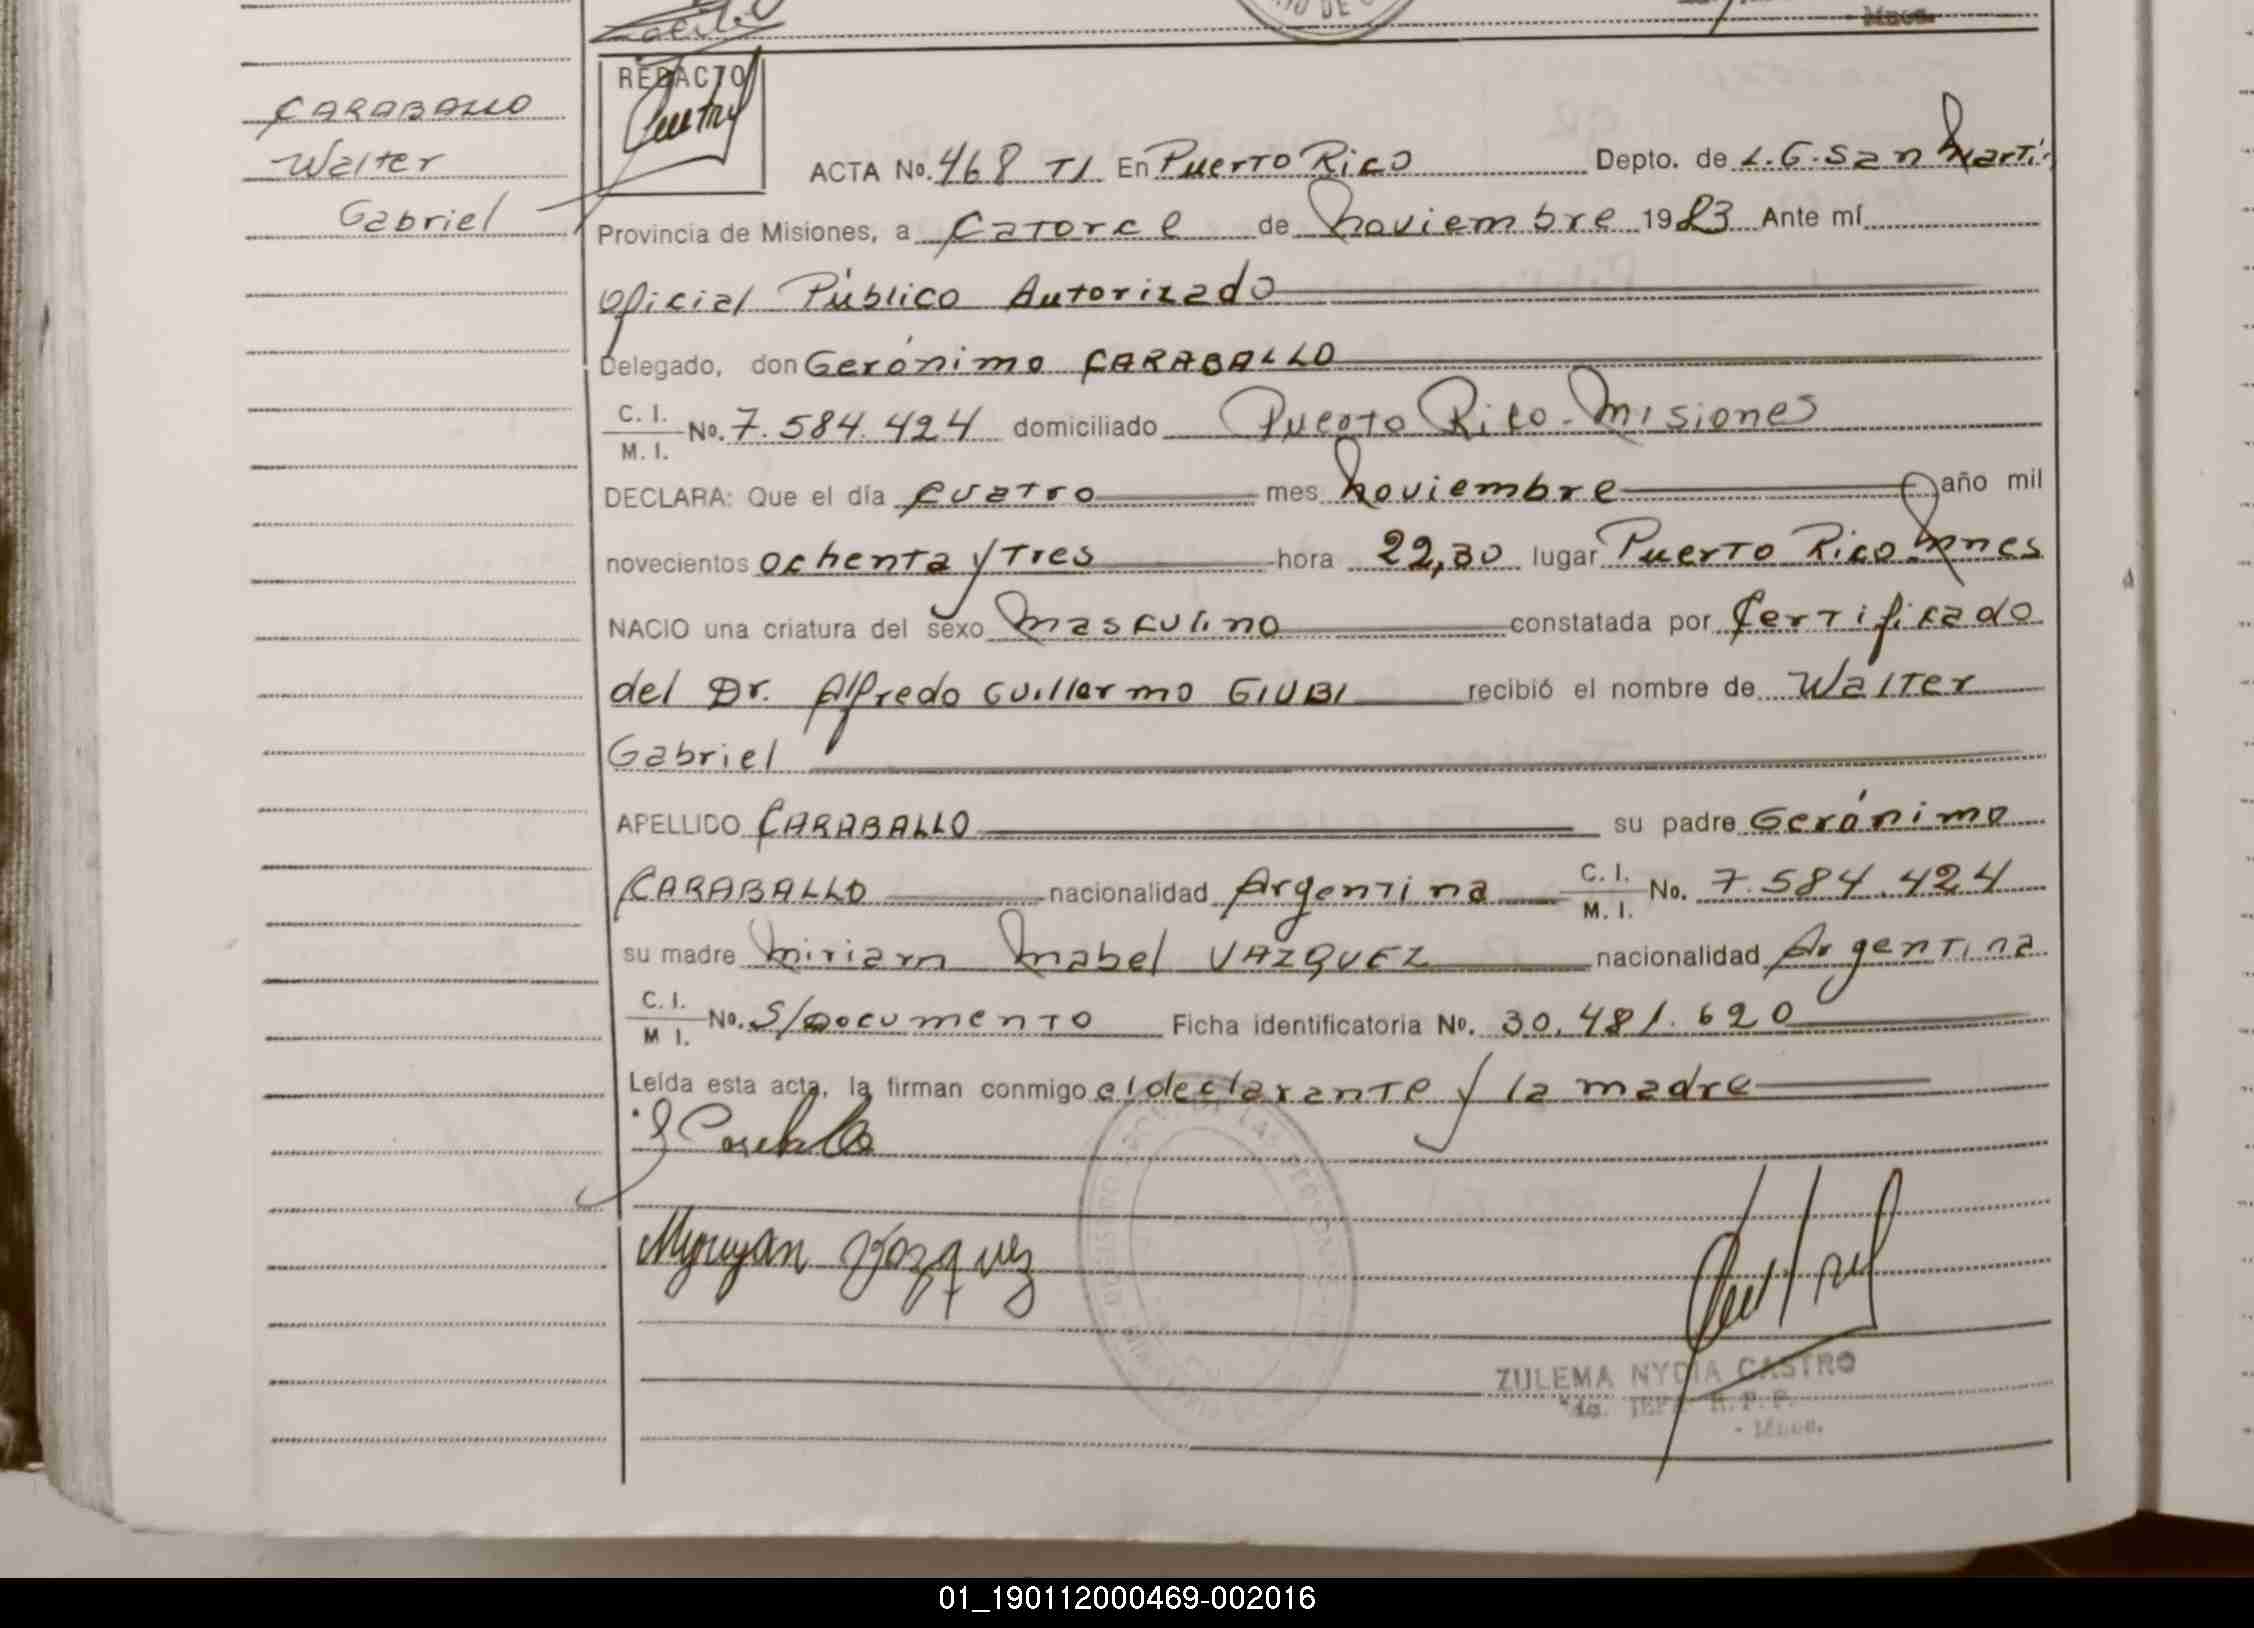 CARABALLO
Walter
Gabriel
REDACTO
ACTA No. 468 TI En Puerto Rico Depto. de L.G. San Martín
Provincia de Misiones, a Catorce de noviembre 1983 Ante mí
Oficial Público Autorizado
Delegado, don Gerónimo CARABALLO
C. I.
M. I. No. 7.584.424 domiciliado Puerto Rico - Misiones
DECLARA: Que el día cuatro mes noviembre año mil
novecientos ochenta y Tres hora 22,30 lugar Puerto Rico Mnes
NACIO una criatura del sexo masculino constatada por Certificado
del Dr. Alfredo Guillermo GIUBI recibió el nombre de Walter
Gabriel
APELLIDO CARABALLO su padre Gerónimo
CARABALLO nacionalidad Argentina C. I. M. I. No. 7.584.424
su madre Miriam Mabel VAZQUEZ nacionalidad Argentina
C. I.
M I. No. S/Documento Ficha identificatoria No. 30.481.620
Leída esta acta, la firman conmigo el declarante y la madre
Myryan Vazquez
ZULEMA NYDIA CASTRO
01_190112000469-002016